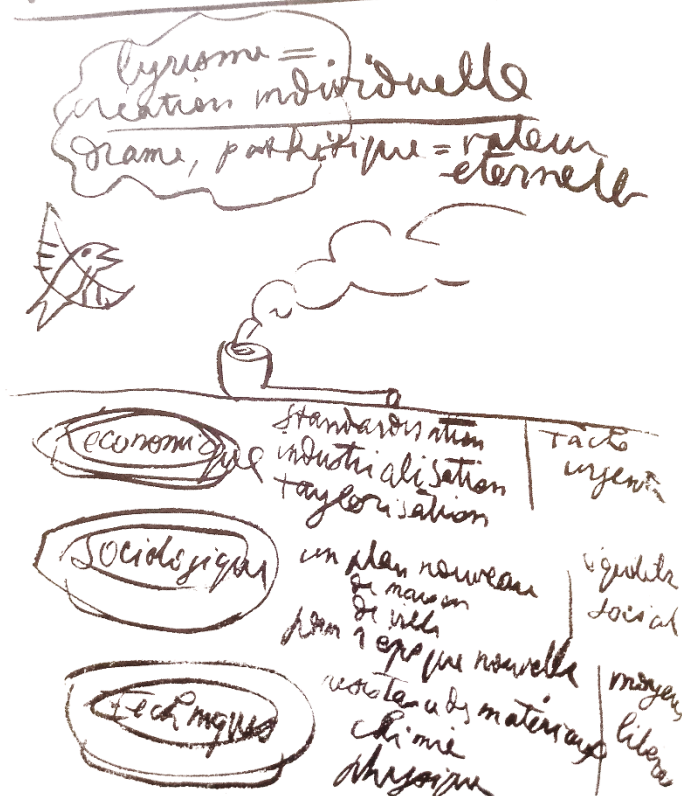 lyrisme =
création individuelle
drame, pathétique = valeur
eternelle
économique
standardisation
industrialisation
taylorisation
urgent
sociologique
un plan nouveau
de maison
de ville
pour l'époque nouvelle
équilibre
social
techniques
résistance des matériaux
chimie
physique
moyens